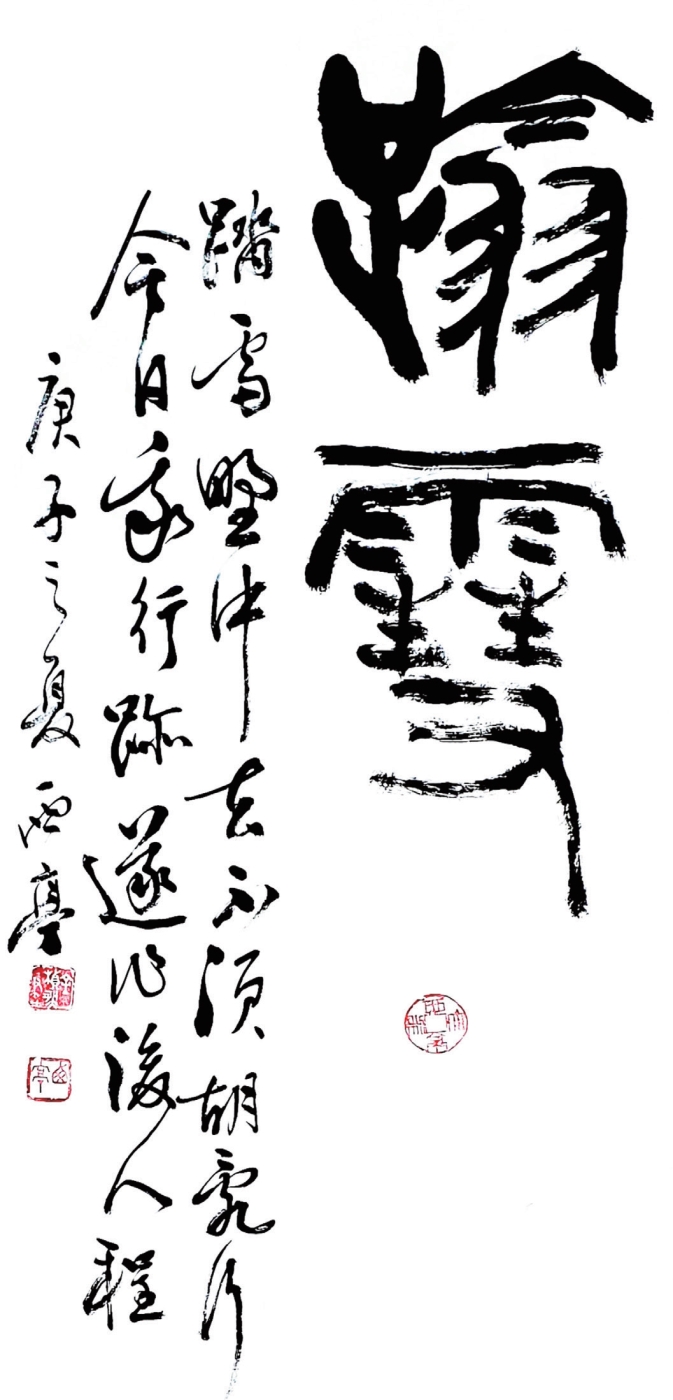 踏雪
踏雪野中去不須胡亂行
今日我行跡遂作後人程
庚子之夏西亭
西亭